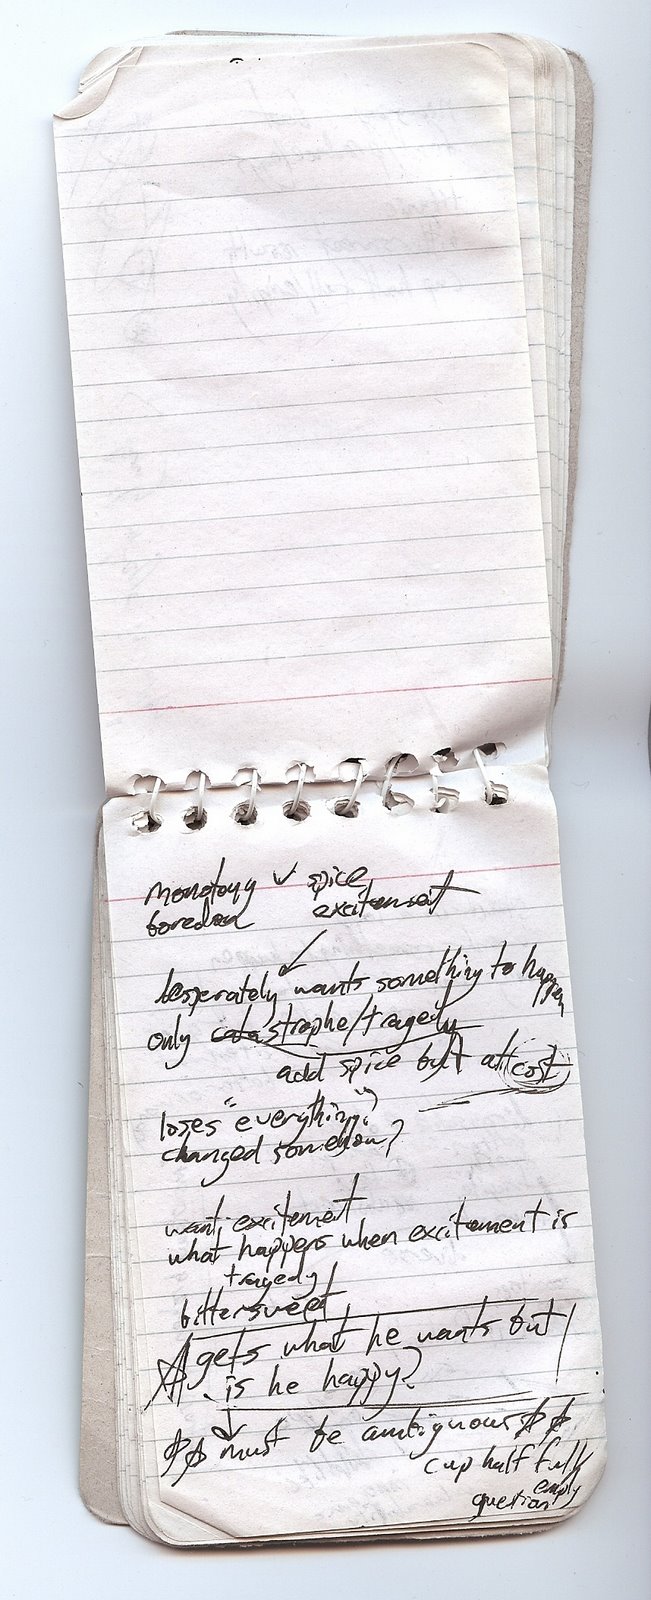 monotony v spice
boredom excitement
desperately wants something to happen
only catastrophe/tragedy
add spice but at cost
loses "everything?"
changed somehow?
want excitement
what happens when excitement is
tragedy!
bittersweet!
gets what he wants but
is he happy?
must be ambiguous
cup half full/
empty
question